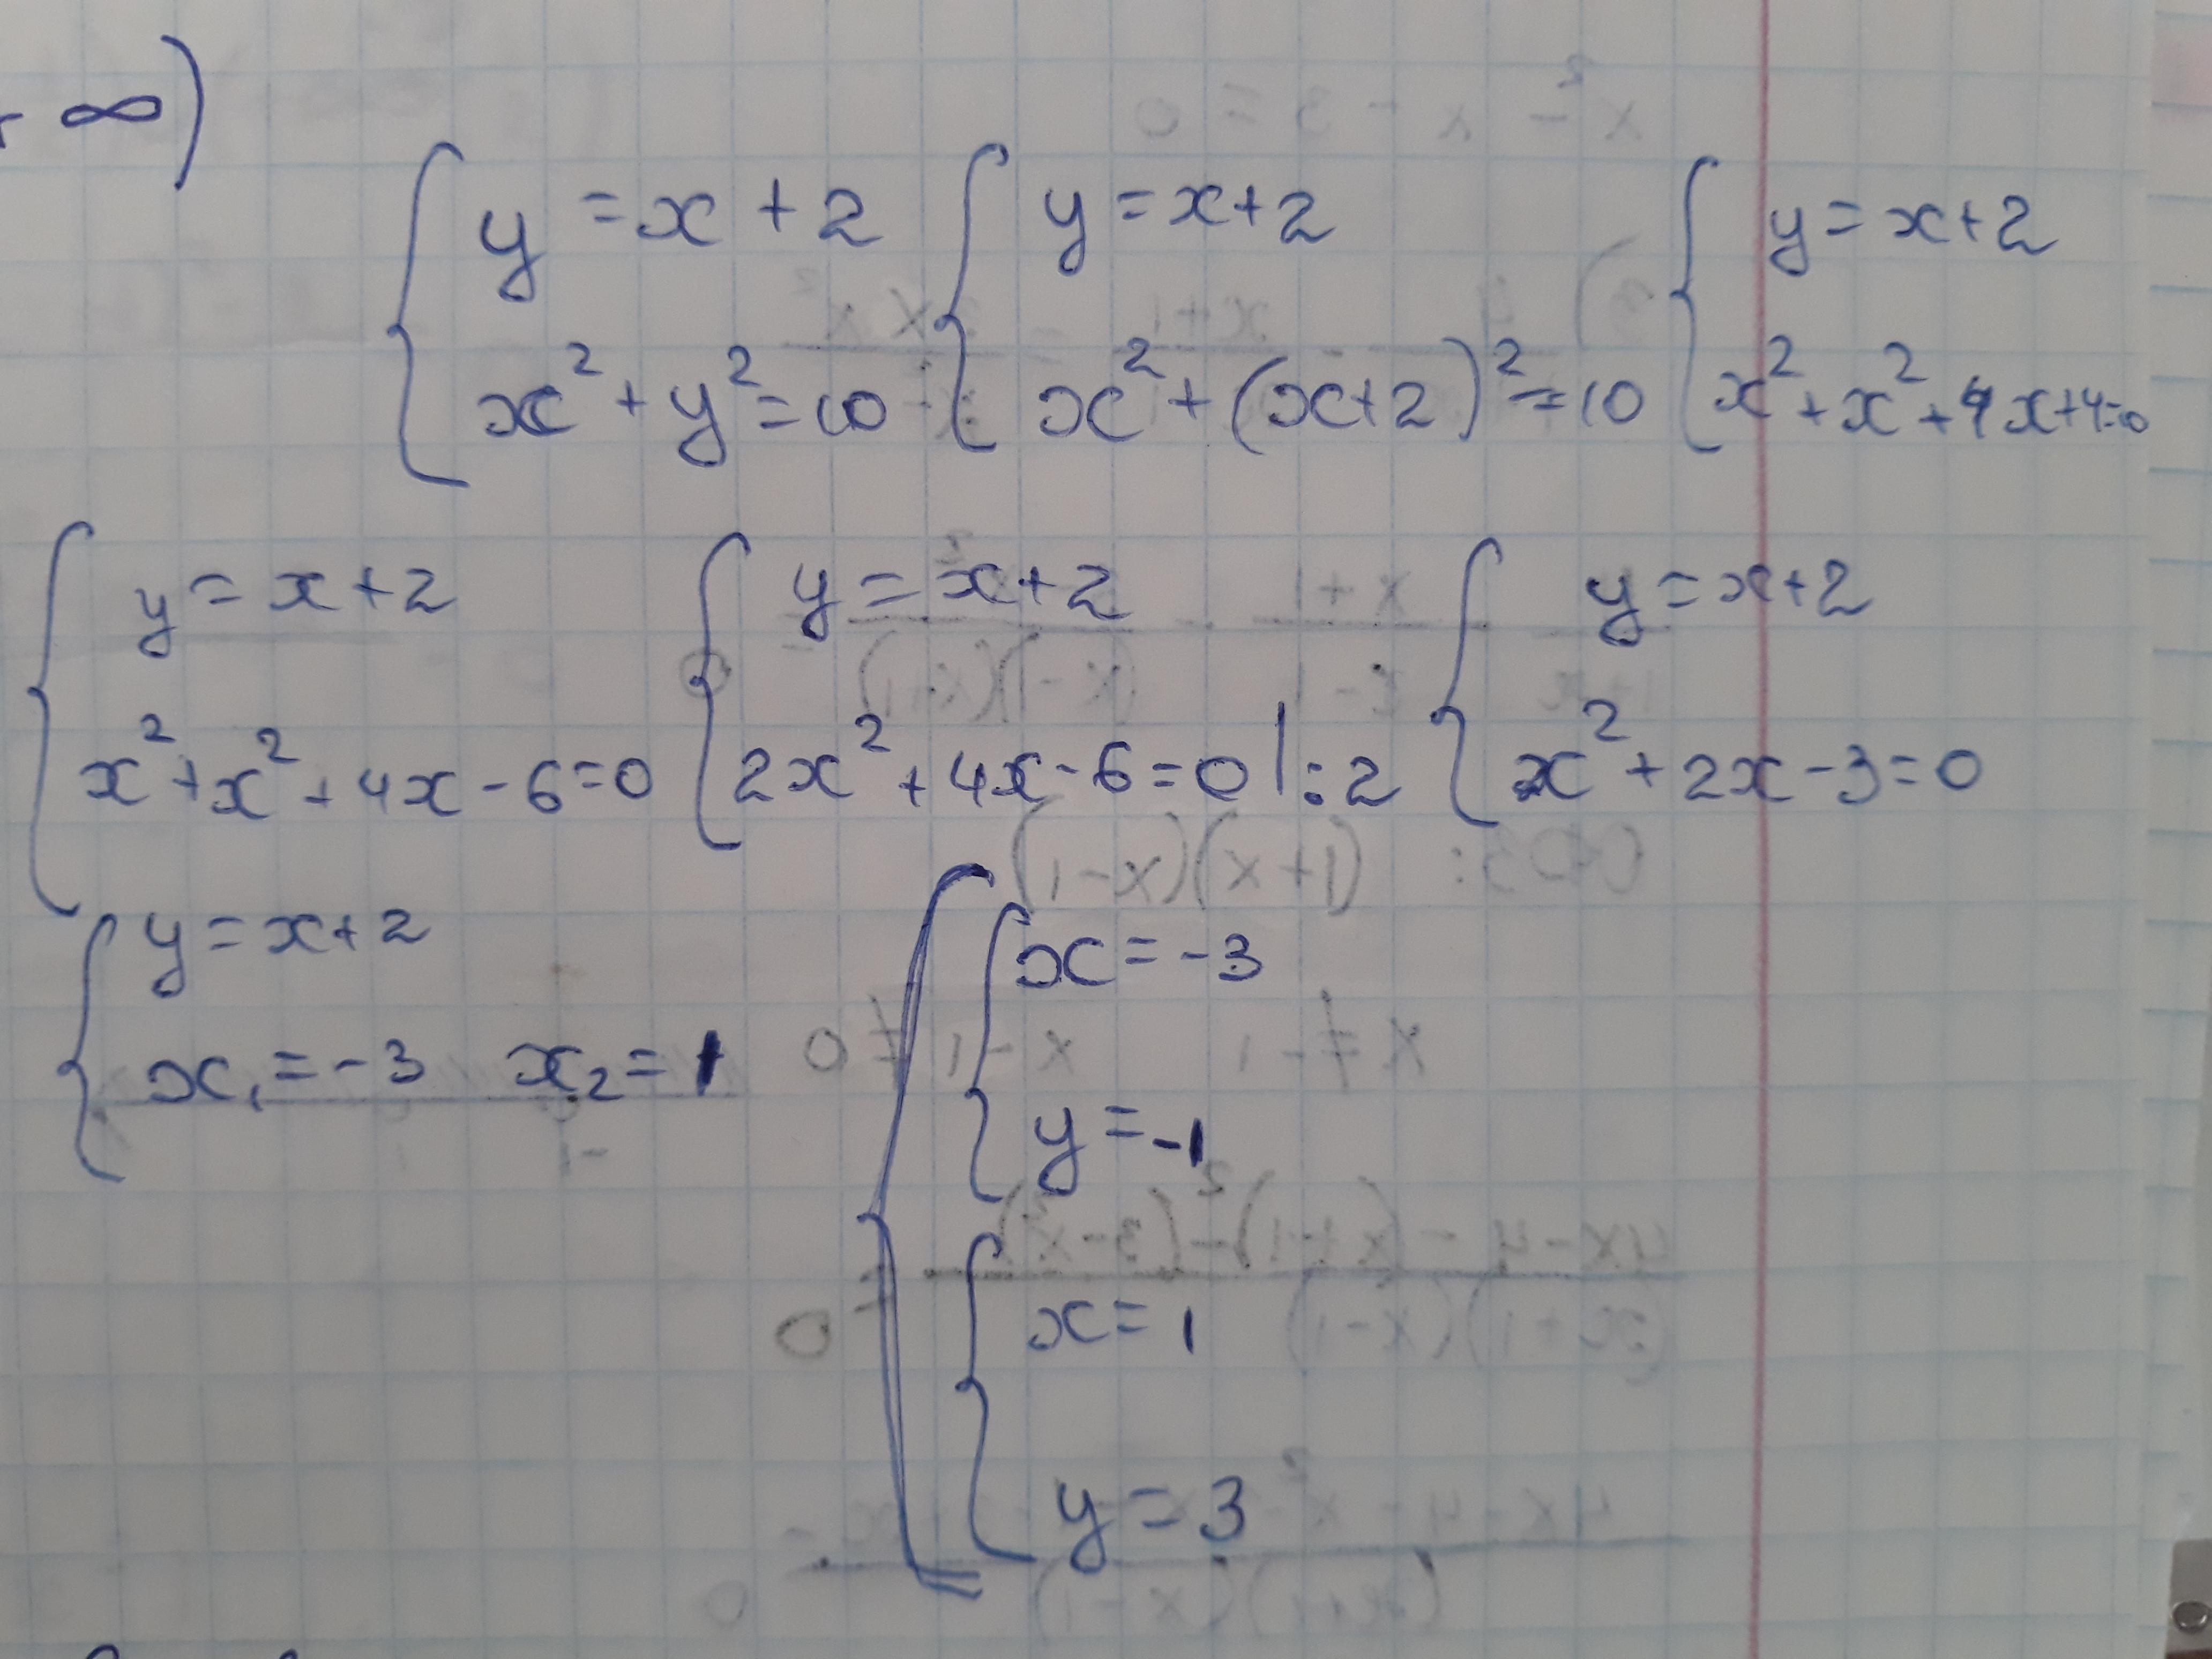 ∞)
y = x + 2
x² + y² = 10
y = x+2
x² + (x+2)² = 10
y = x+2
x² + x² + 4x+4=0
y = x+2
x² + x² + 4x - 6 = 0
y = x+2
2x² + 4x - 6 = 0 | : 2
y = x+2
x² + 2x - 3 = 0
y = x+2
x₁ = -3 x₂ = 1
x = -3
y = -1
x = 1
y = 3